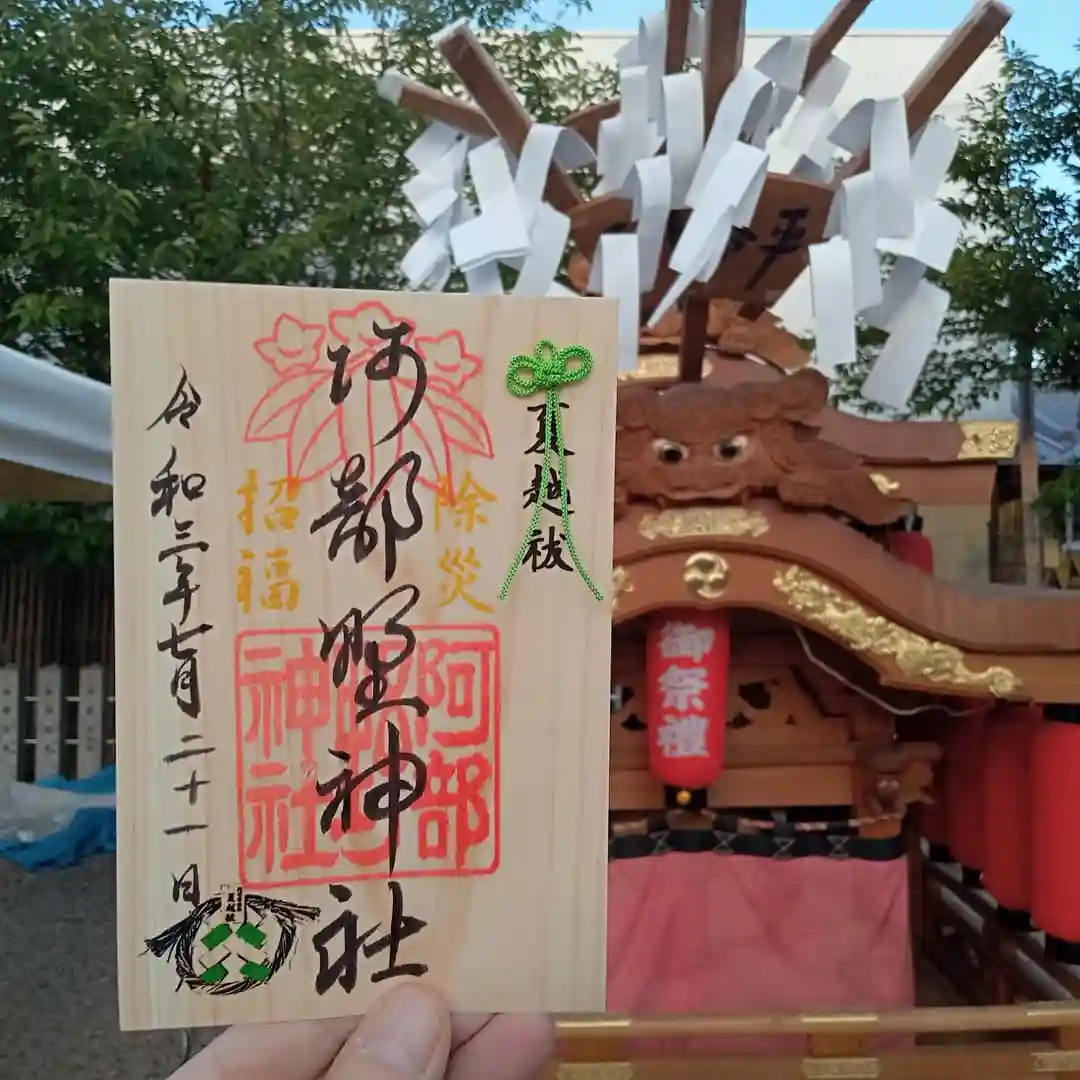 夏越祓
除災
招福
阿部野神社
令和三年七月二十一日
阿部野神社
夏越祓
御祭禮